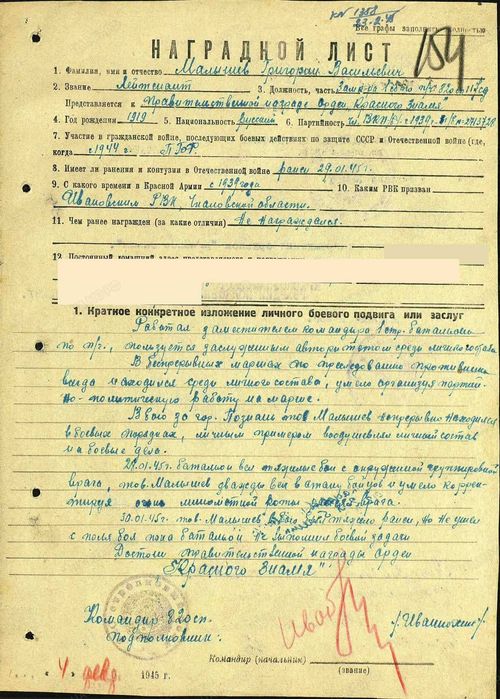 КМ 1358
22.2.45
Все графы заполнять полностью
154
НАГРАДНОЙ ЛИСТ
1. Фамилия, имя и отчество Малышев Григорий Васильевич
2. Звание Лейтенант 3. Должность, часть
Представляется к Правительственной награде Орден Красного Знамя
4. Год рождения 1919 5. Национальность Русский 6. Партийность Чл. ВКП(б) с 1939г.
7. Участие в гражданской войне, последующих боевых действиях по защите СССР и Отечественной войне (где,
когда) с 1944 г.
8. Имеет ли ранения и контузии в Отечественной войне ранен 29.01.45г.
9. С какого времени в Красной Армии с 1939 года 10. Каким РВК призван
Ивановским РВК Чкаловской области.
11. Чем ранее награжден (за какие отличия) Не награждался.
12. Постоянный домашний адрес
1. Краткое конкретное изложение личного боевого подвига или заслуг
Работал заместителем командира 1 стр. батальона
по п/ч, пользуется заслуженным авторитетом среди личного состава
В беспрерывных маршах по преследованию противника
всегда находился среди личного состава, умело организуя партий-
но-политическую работу на марше.
В бою за гор. Познань тов Малышев непрерывно находился
в боевых порядках, личным примером воодушевлял личный состав
на боевые дела.
29.01.45г батальон вел тяжелые бои с окруженной группировкой
врага, тов. Малышев дважды вел в атаку бойцов и умело коррек-
тируя огонь минометной роты врага.
30.01.45г. тов. Малышев в бою тяжело ранен, но не ушел
с поля боя пока батальон не выполнил боевой задачи
Достоин правительственной награды орден
"Красного Знамя"
Командир 820сп.
подполковник
Командир (начальник)
(звание)
4 1945 г.